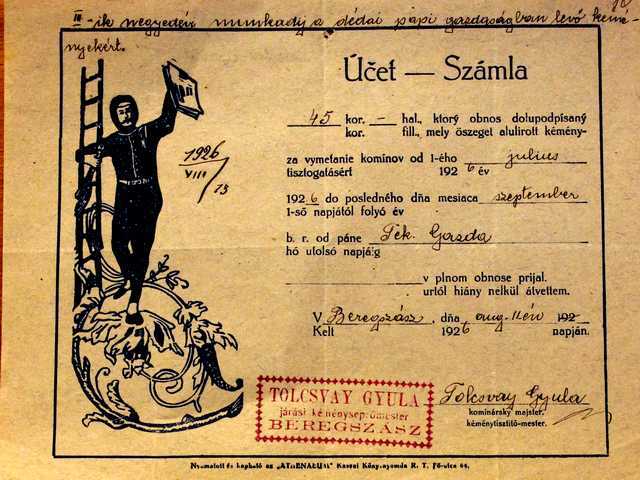 III-ik negyedévi munkadíj a dédai papi gazdaságban levő kémé-
nyekért.
Účet — Számla
45 kor. — hal., ktorý obnos dolupodpísaný
kor. fill., mely öszeget alulirott kémény-
za vymetanie komínov od 1-ého július
tisztogatásért 1926 év
1926 do posledného dňa mesiaca szeptember
1-ső napjától folyó év
b. r. od páne Tek. Gazda
hó utolsó napjáig
v plnom obnose prijal.
urtól hiány nelkül átvettem.
V Beregszász, dňa aug. 11 én 192-
Kelt 1926 napján.
1926
VIII/13
TOLCSVAY GYULA
járási kéményseprőmester
BEREGSZÁSZ
Tolcsvay Gyula
kominársky majster.
kéménytisztitő-mester.
Nyomatott és kapható az "ATHENAEUM" Kassai Könyvnyomda R. T. Fő-utca 64.